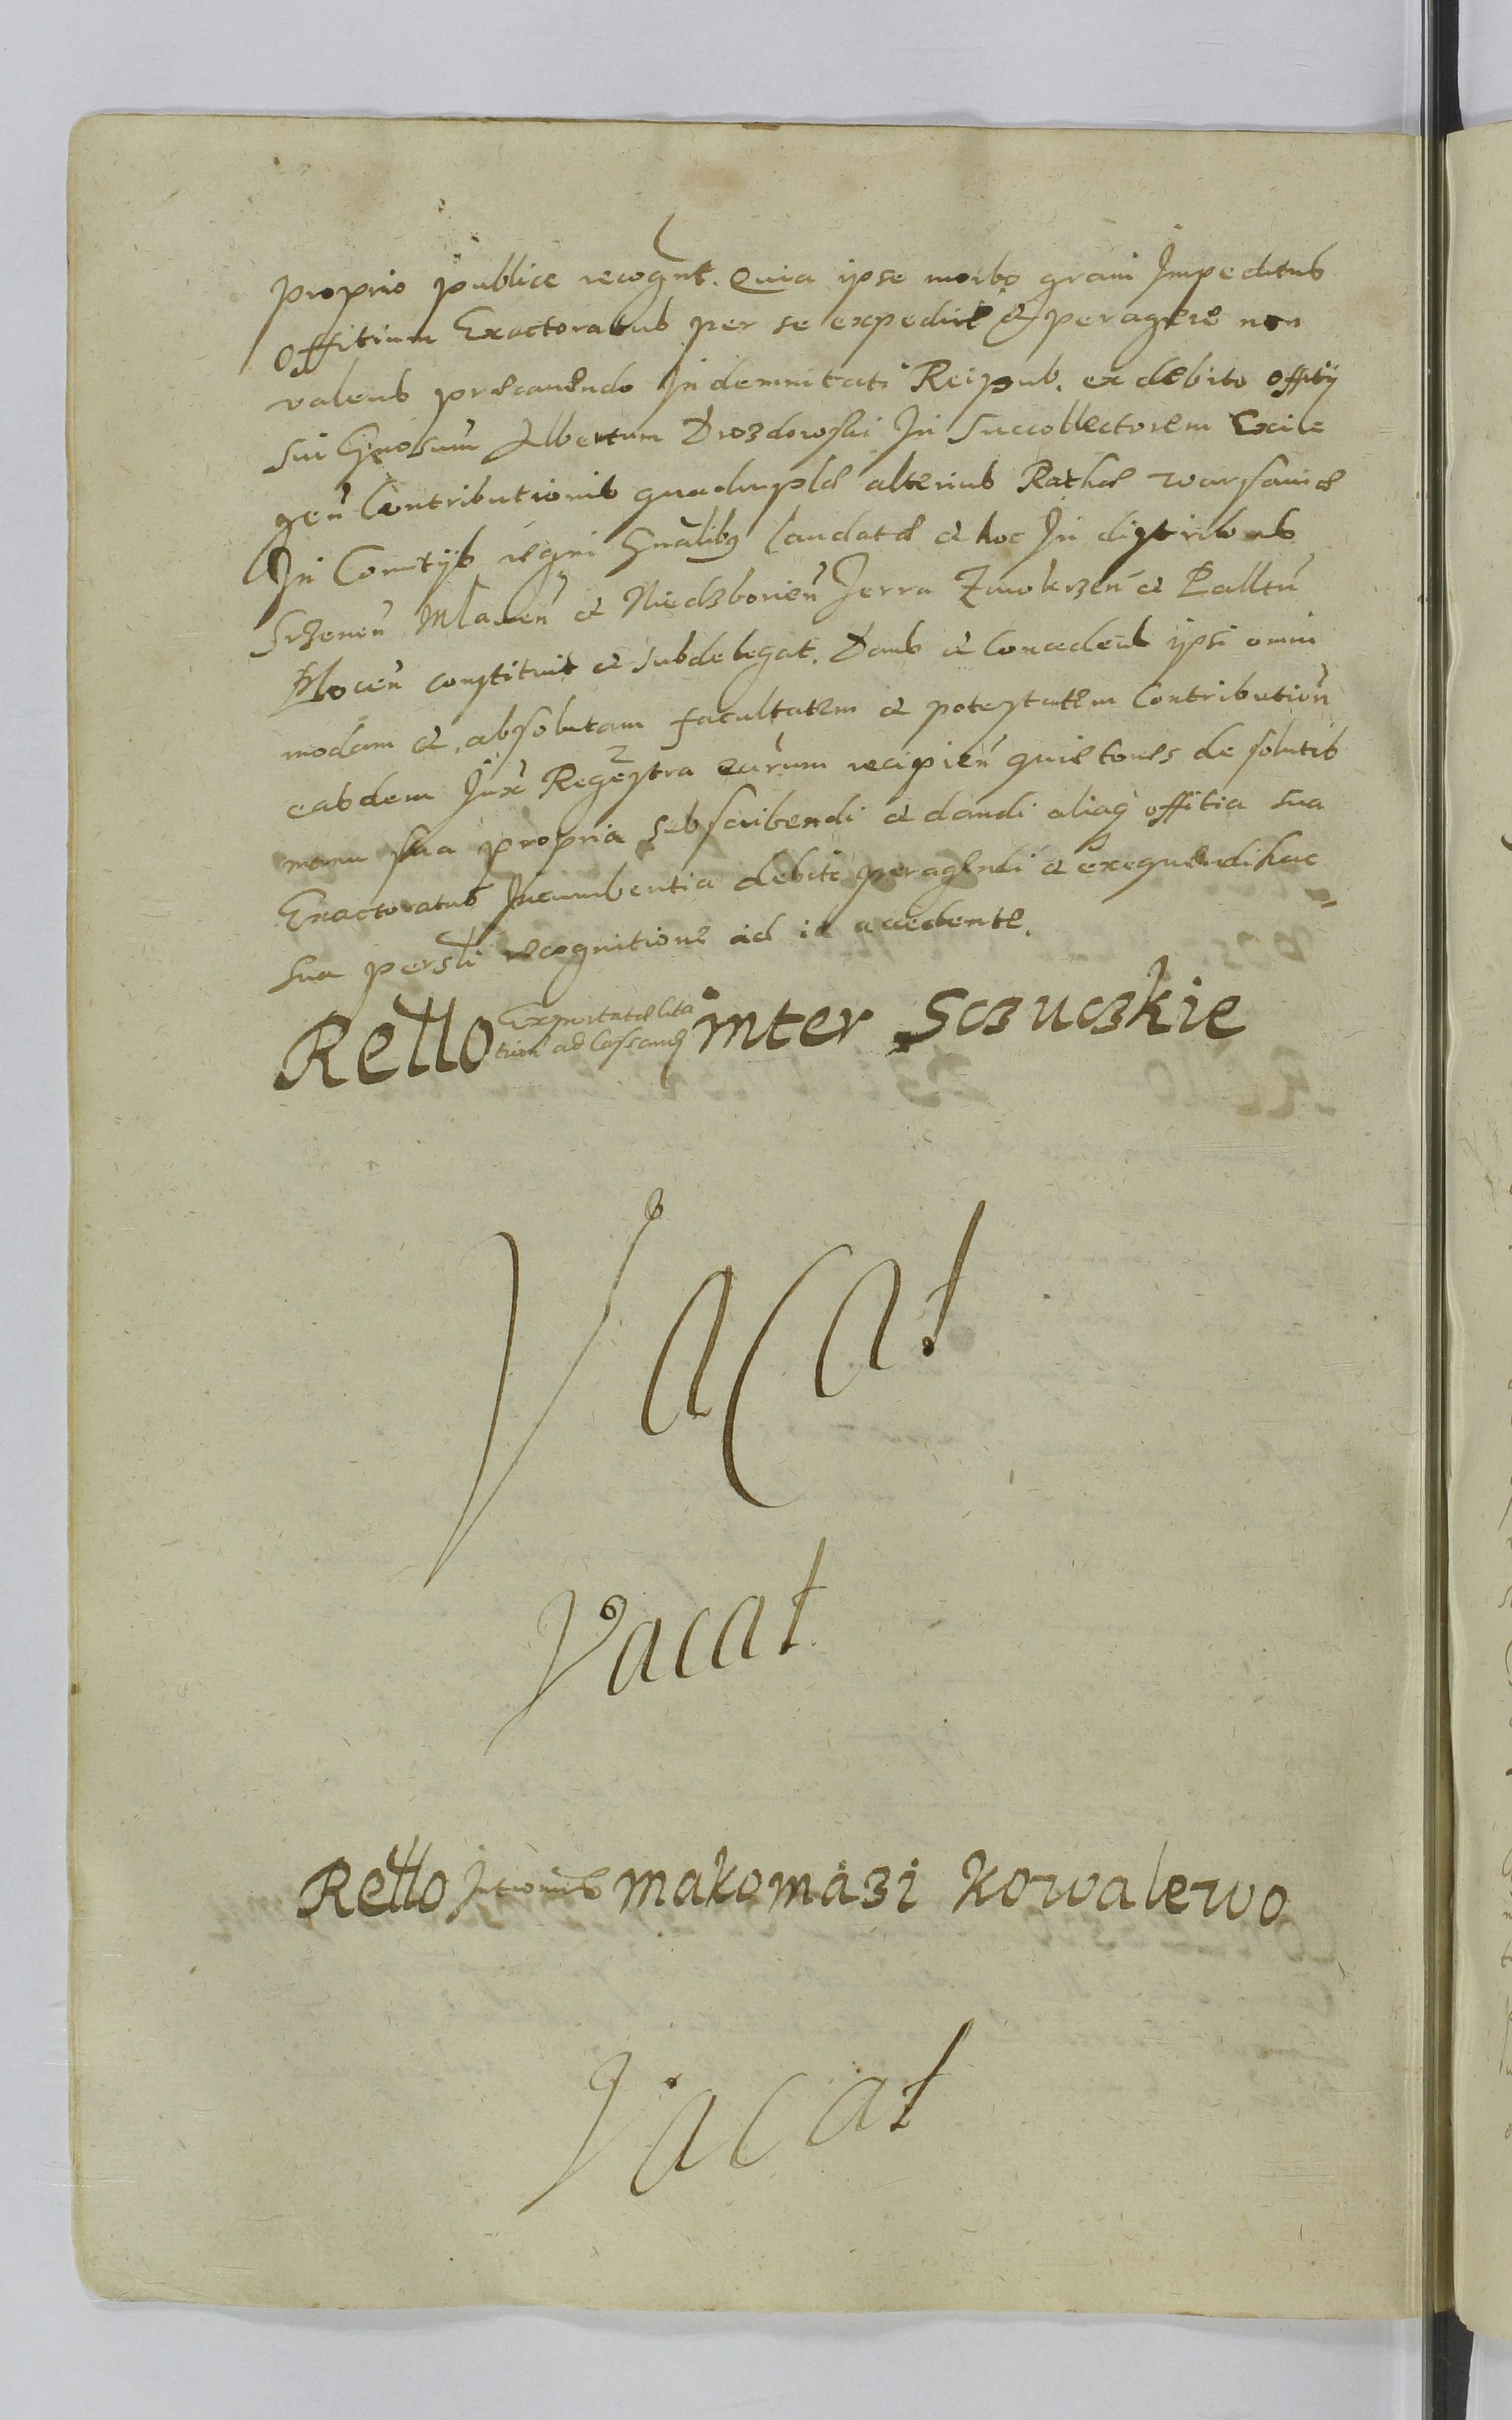 proprio publice recognt. Quia ipse morbo graui Impeditus
Offitium Exactoratus per se expedire & peragere non
valens praecauendo Indemnitati Reipub. ex debito offitij
sui Gnosum Albertum Drozdowski In Succollectorem
gen Contributionis quadruplae alterius Rathae warsauiae
In Comitijs regni Gnalibq laudatae & hoc In districtibus
Srzenen Mlauen & Niedzborien Terra Zawkrzen & Palltu
Plocen constituit & subdelegat. Dans & Concedens ipsi omni
modam & absolutam facultatem & potestatem Contribution
easdem Jux Regestra earum recipien quietones de solutis
manu sua propria subscribendi & dandi aliaq offitia sua
Exactoratus Incumbentia debite peragendi & exequendi hac
sua persli recognitione ad id accedente.
Rello Exportatae lita inter Sczuczkie
tium ad Cassand
Vacat
Vacat
Rello makomazi Kowalewo
Vacat